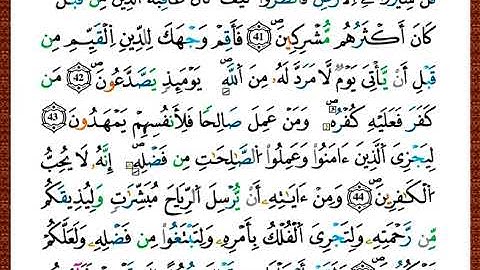 قُلْ سِيرُوا۟ فِى ٱلْأَرْضِ فَٱنظُرُوا۟ كَيْفَ كَانَ عَـٰقِبَةُ ٱلَّذِينَ مِن قَبْلُ
كَانَ أَكْثَرُهُم مُّشْرِكِينَ 41 فَأَقِمْ وَجْهَكَ لِلدِّينِ ٱلْقَيِّمِ مِن
قَبْلِ أَن يَأْتِىَ يَوْمٌ لَّا مَرَدَّ لَهُۥ مِنَ ٱللَّهِ يَوْمَئِذٍ يَصَّدَّعُونَ 42 مَن
كَفَرَ فَعَلَيْهِ كُفْرُهُۥ وَمَنْ عَمِلَ صَـٰلِحًا فَلِأَنفُسِهِمْ يَمْهَدُونَ 43
لِيَجْزِىَ ٱلَّذِينَ ءَامَنُوا۟ وَعَمِلُوا۟ ٱلصَّـٰلِحَـٰتِ مِن فَضْلِهِۦٓ إِنَّهُۥ لَا يُحِبُّ
ٱلْكَـٰفِرِينَ 44 وَمِنْ ءَايَـٰتِهِۦٓ أَن يُرْسِلَ ٱلرِّيَاحَ مُبَشِّرَٰتٍ وَلِيُذِيقَكُم
مِّن رَّحْمَتِهِۦ وَلِتَجْرِىَ ٱلْفُلْكُ بِأَمْرِهِۦ وَلِتَبْتَغُوا۟ مِن فَضْلِهِۦ وَلَعَلَّكُمْ